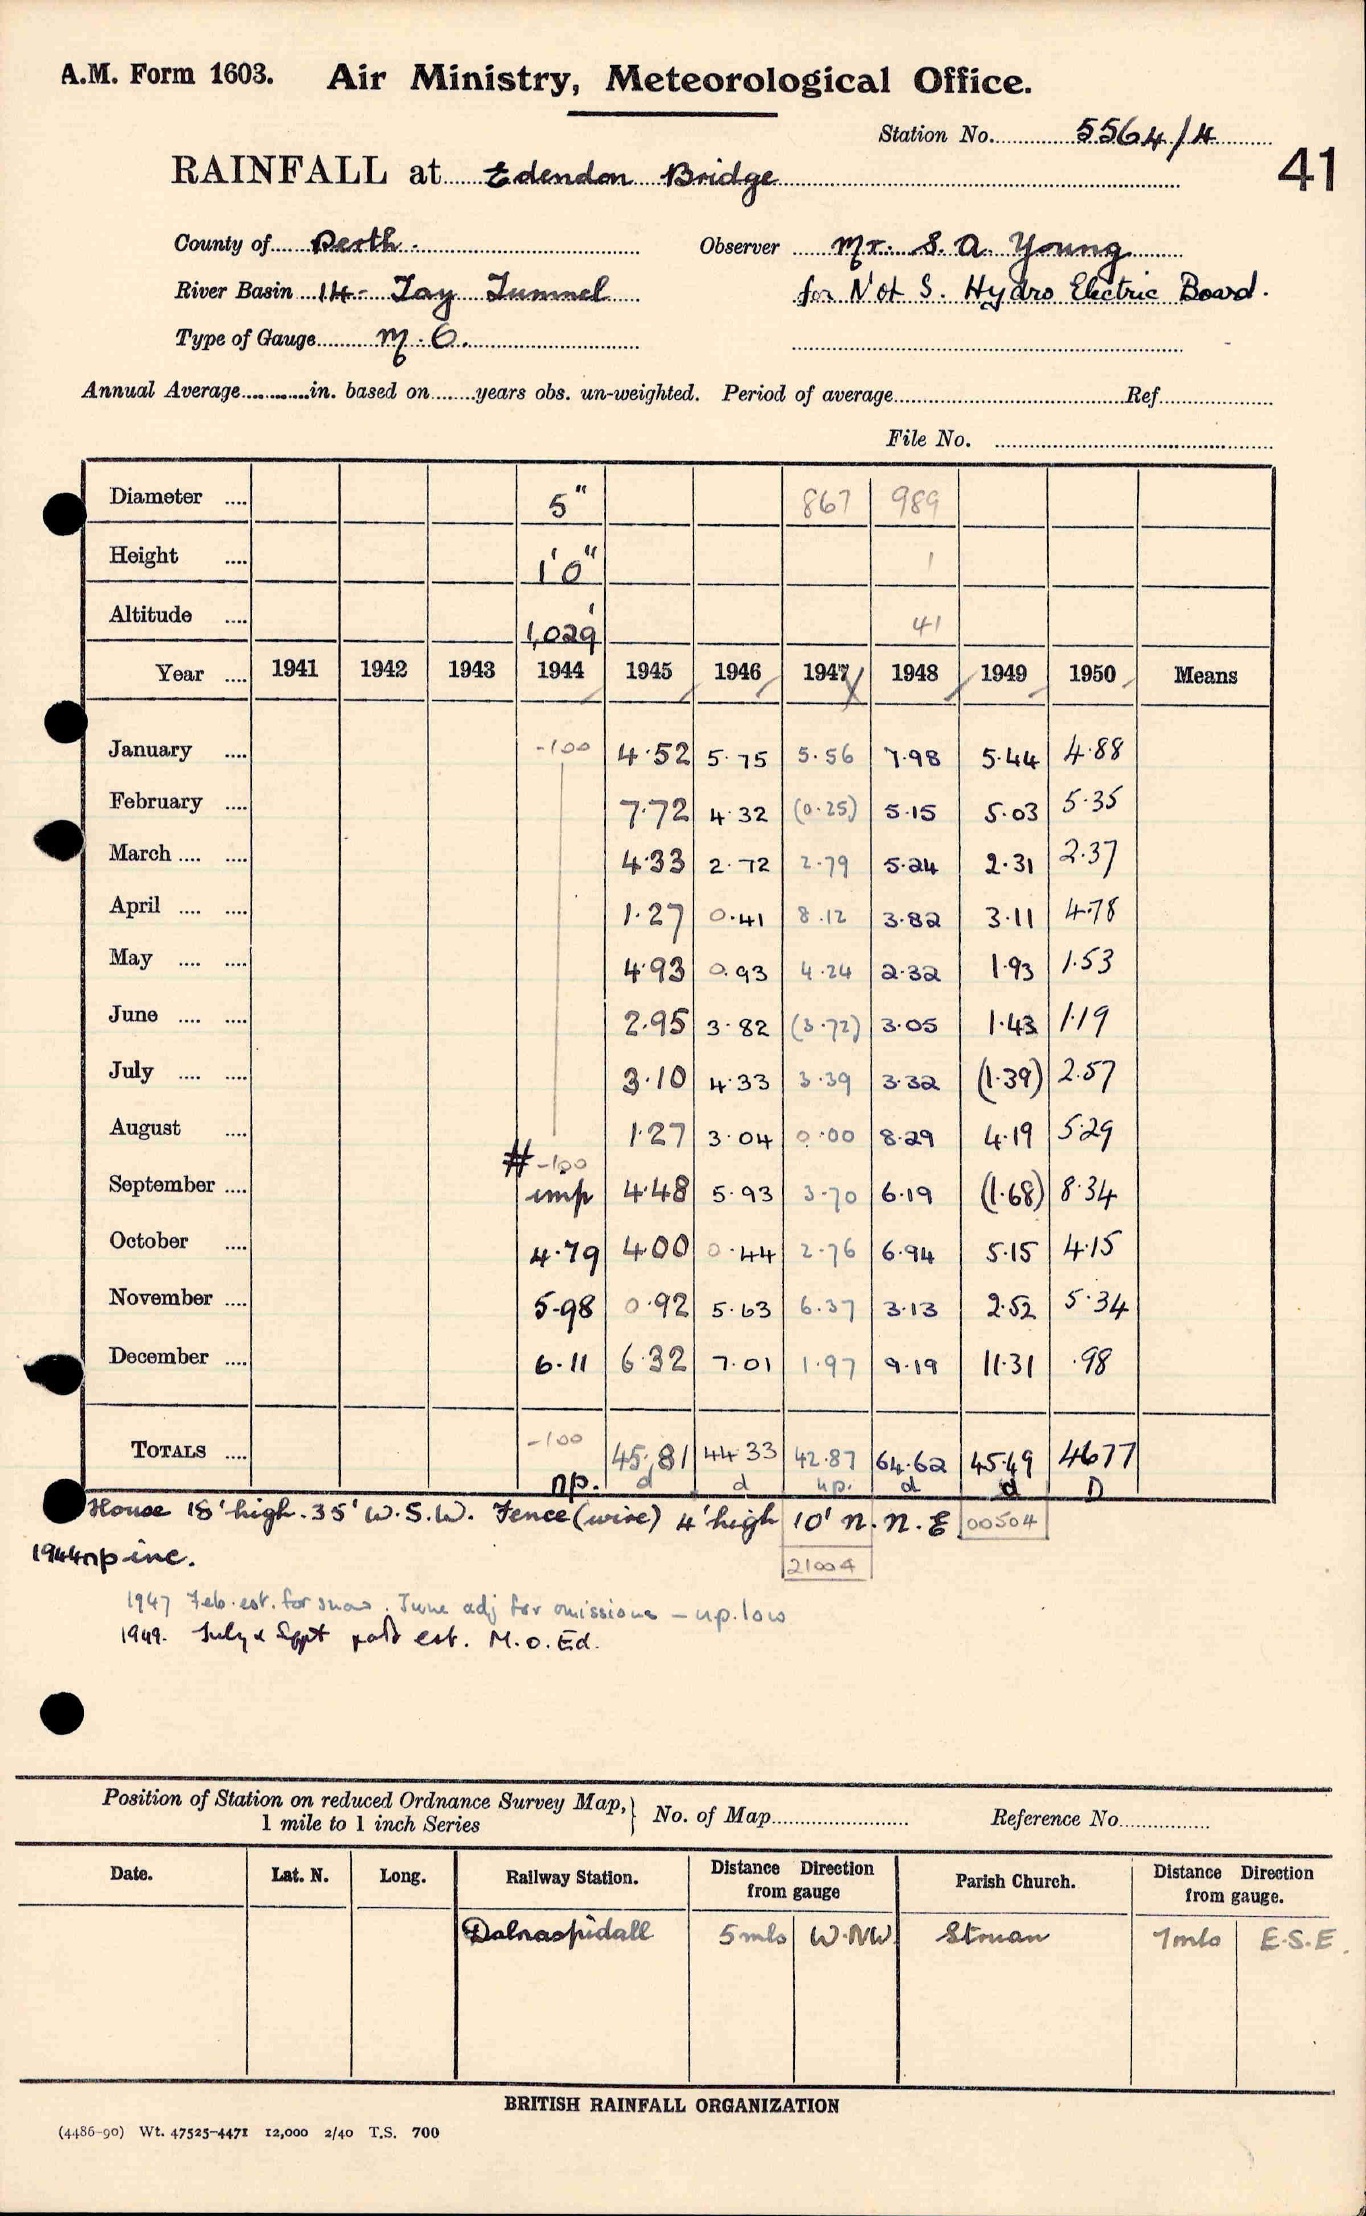 A.M. Form 1603. Air Ministry, Meteorological Office.
Station No. 5564/4
41
RAINFALL at Edendon Bridge
County of Perth. Observer Mr. S. A. Young
River Basin 14- Tay Tummel for N of S. Hydro Electric Board.
Type of Gauge M.O.
Annual Average in. based on years obs. un-weighted. Period of average Ref
File No.
Diameter 5" 867 989
Height 1'0" 1
Altitude 1,029' 41
Year 1941 1942 1943 1944 1945 1946 1947 1948 1949 1950 Means
January -100 4.52 5.75 5.56 7.98 5.44 4.88
February 7.72 4.32 (0.25) 5.15 5.03 5.35
March 4.33 2.72 2.79 5.24 2.31 2.37
April 1.27 0.41 8.12 3.82 3.11 4.78
May 4.93 0.93 4.24 2.32 1.93 1.53
June 2.95 3.82 (3.72) 3.05 1.43 1.19
July 3.10 4.33 3.39 3.32 (1.39) 2.57
August 1.27 3.04 0.00 8.29 4.19 5.29
# -100
September imp 4.48 5.93 3.70 6.19 (1.68) 8.34
October 4.79 4.00 0.44 2.76 6.94 5.15 4.15
November 5.98 0.92 5.63 6.37 3.13 2.52 5.34
December 6.11 6.32 7.01 1.97 9.19 11.31 .98
TOTALS -100 45.81 44.33 42.87 64.62 45.49 46.77
np. d d up. d d D
House 18' high. 35' W.S.W. Fence (wire) 4' high 10' N.N.E 00504
1944 np inc. 21004
1947 Feb. est. for snow. June adj for omissions - up. low
1949. July & Sept part est. M.O.Ed.
Position of Station on reduced Ordnance Survey Map, 1 mile to 1 inch Series No. of Map Reference No
Date. Lat. N. Long. Railway Station. Distance Direction from gauge Parish Church. Distance Direction from gauge.
Dalnaspidall 5 mls W.NW. Struan 7 mls E.S.E.
BRITISH RAINFALL ORGANIZATION
(4486-90) Wt. 47525-4471 12,000 2/40 T.S. 700